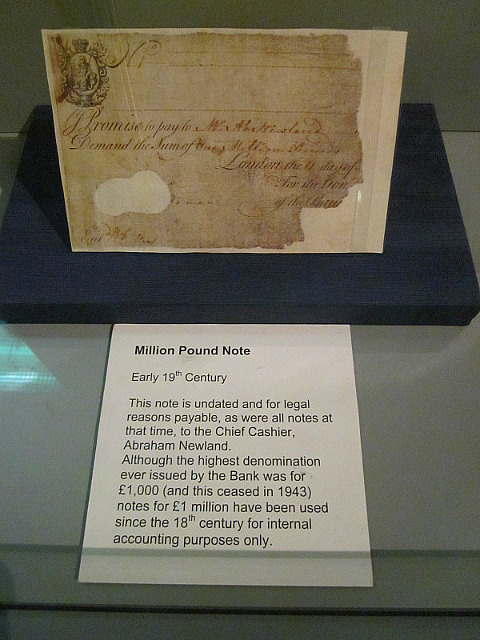 I Promise to pay to Mr. Ab. Newland
Demand the Sum of One Million Pounds
London the 4 day of
For the Gov
of the Bank
Million Pound Note
Early 19th Century
This note is undated and for legal
reasons payable, as were all notes at
that time, to the Chief Cashier,
Abraham Newland.
Although the highest denomination
ever issued by the Bank was for
£1,000 (and this ceased in 1943)
notes for £1 million have been used
since the 18th century for internal
accounting purposes only.